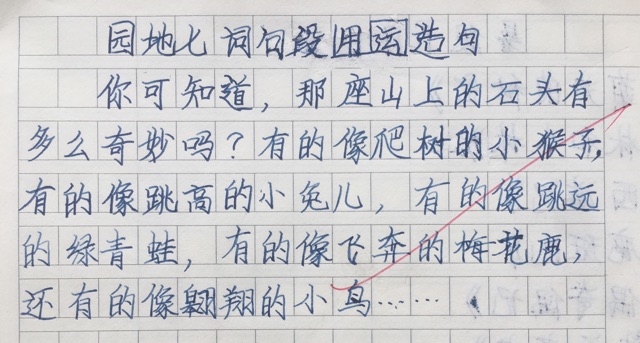 园地七 词句段用运造句
你可知道，那座山上的石头有
多么奇妙吗？有的像爬树的小猴子，
有的像跳高的小兔儿，有的像跳远
的绿青蛙，有的像飞奔的梅花鹿，
还有的像翱翔的小鸟……